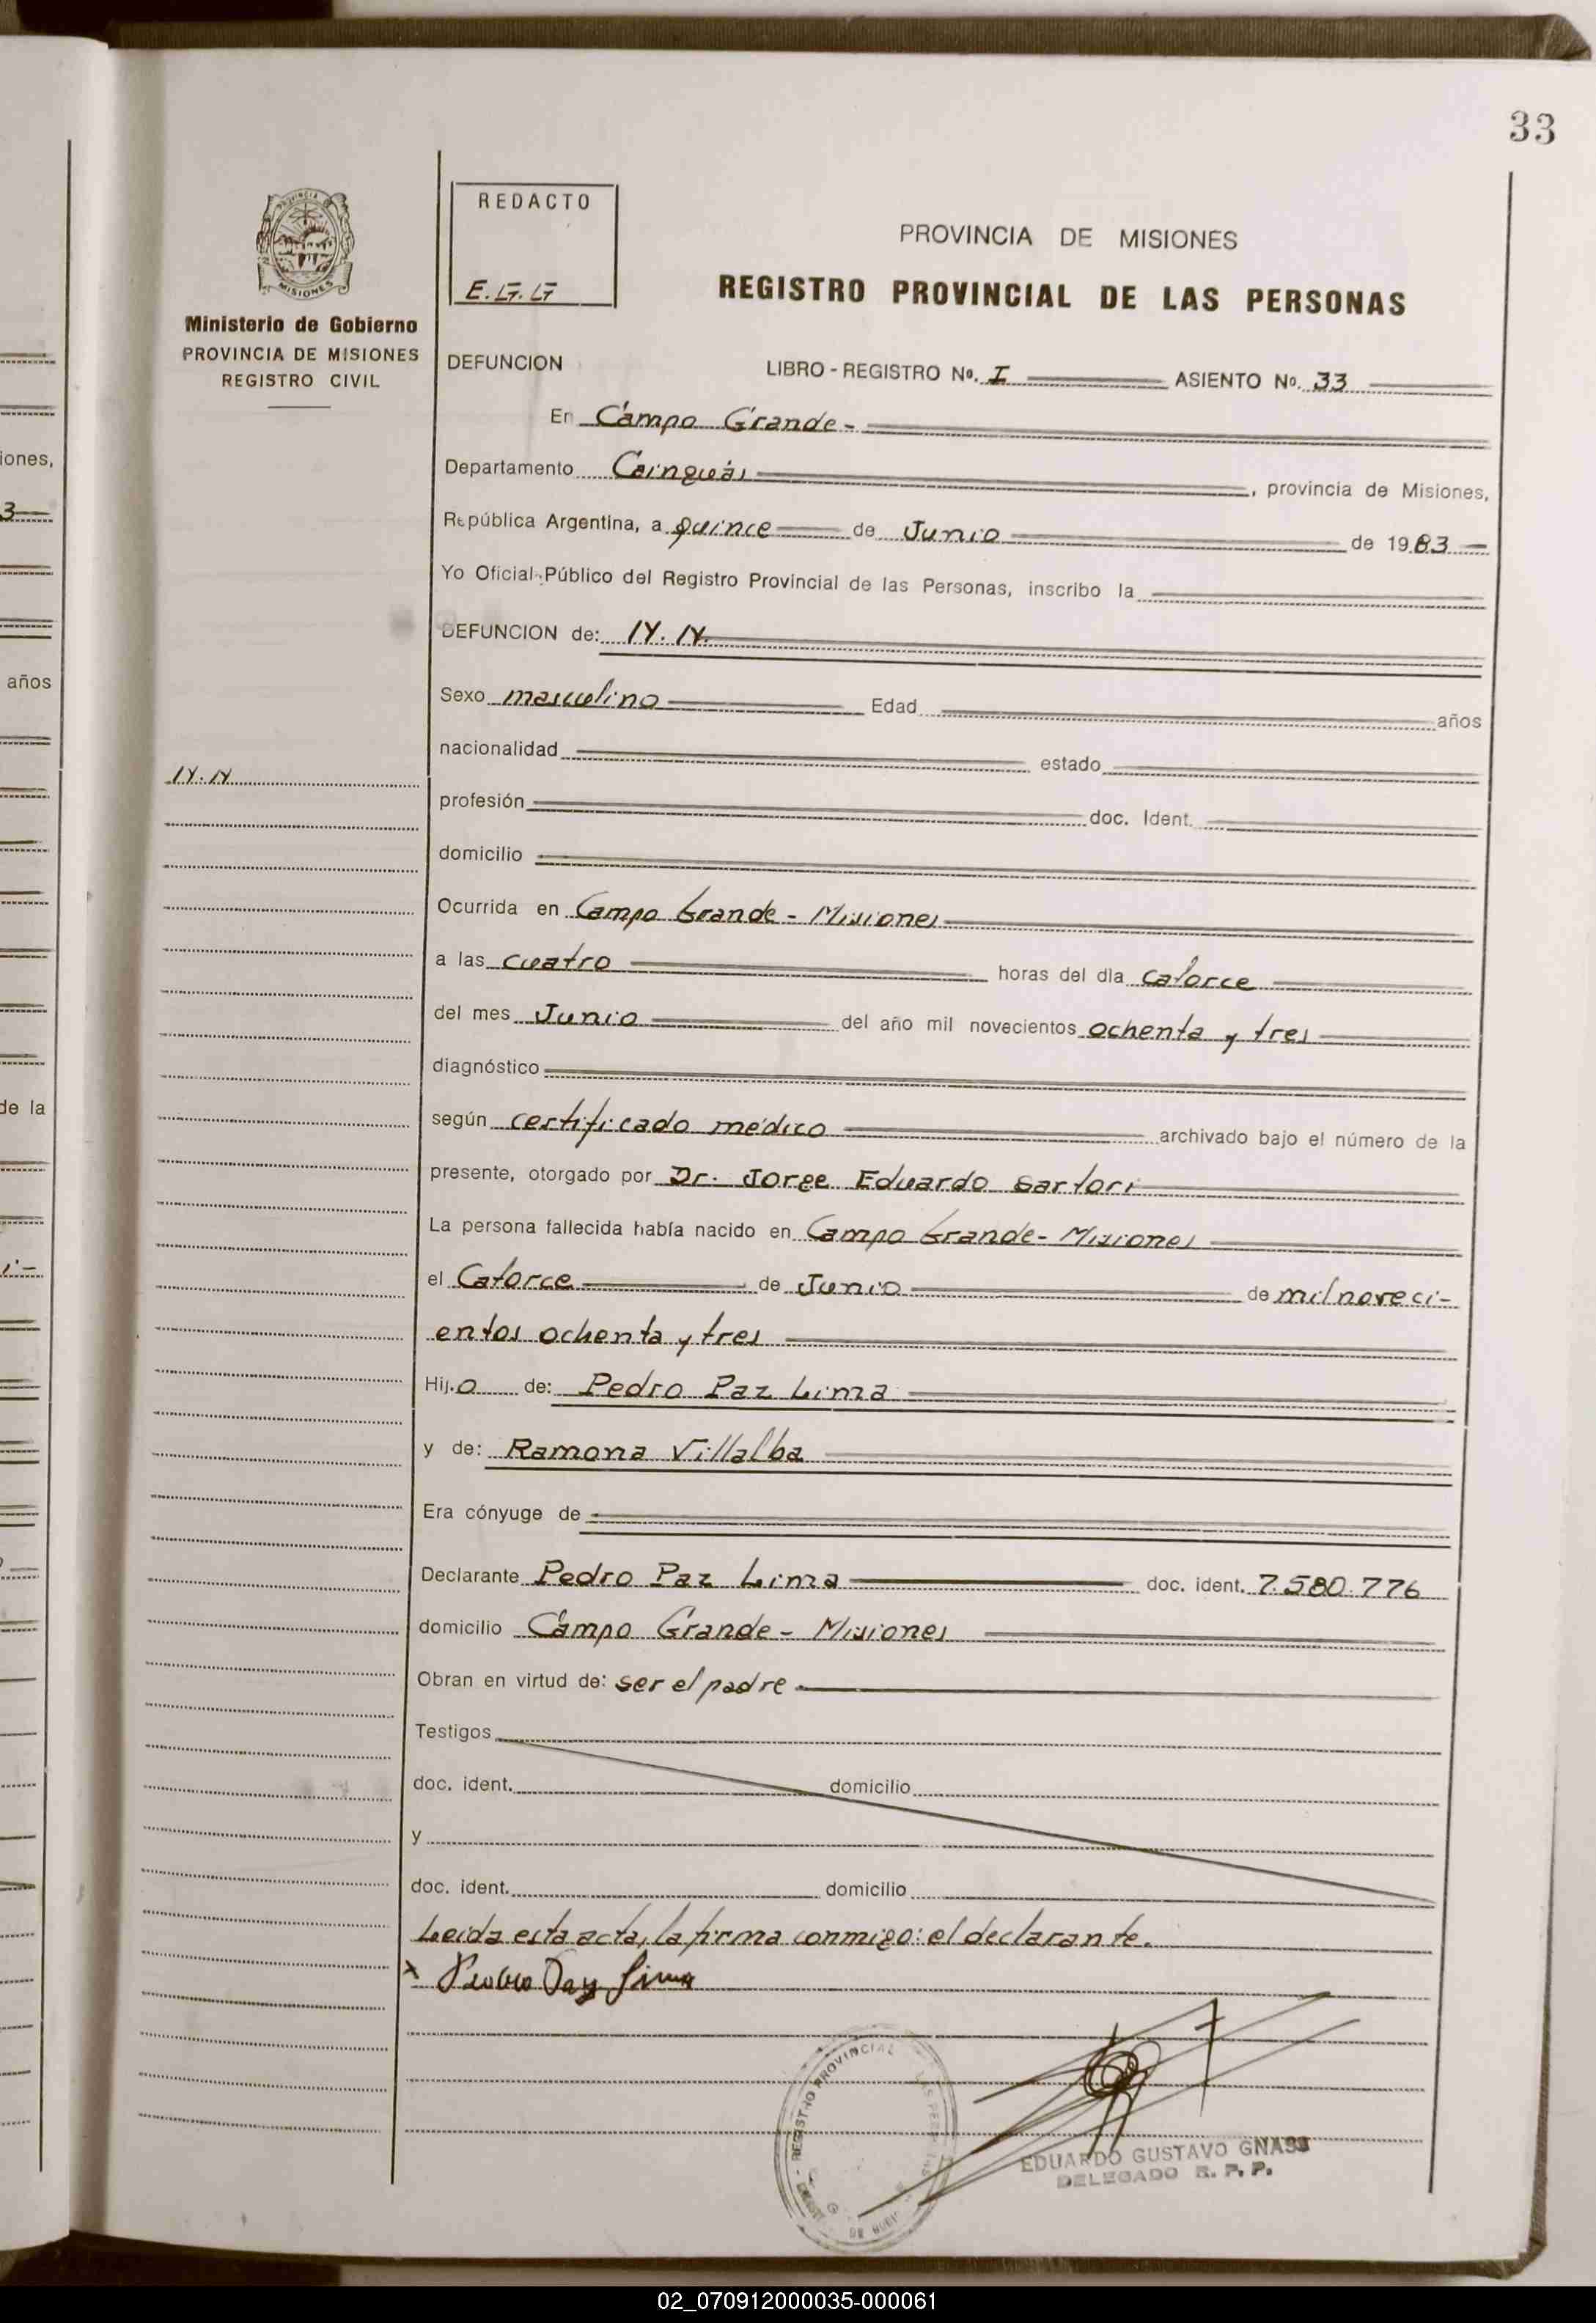 33
PROVINCIA DE
MISIONES
Ministerio de Gobierno
PROVINCIA DE MISIONES
REGISTRO CIVIL
REDACTO
E.G.G
PROVINCIA DE MISIONES
REGISTRO PROVINCIAL DE LAS PERSONAS
DEFUNCION LIBRO - REGISTRO Nº. I ASIENTO Nº. 33
En Campo Grande -
Departamento Cainguás, provincia de Misiones,
República Argentina, a quince de Junio de 1983
Yo Oficial Público del Registro Provincial de las Personas, inscribo la
DEFUNCION de: N. N.
Sexo masculino Edad años
nacionalidad estado
N. N
profesión doc. Ident.
domicilio
Ocurrida en Campo Grande - Misiones
a las cuatro horas del día catorce
del mes Junio del año mil novecientos ochenta y tres
diagnóstico
según certificado médico archivado bajo el número de la
presente, otorgado por Dr. Jorge Eduardo Sartori
La persona fallecida había nacido en Campo Grande - Misiones
el Catorce de Junio de mil noveci-
entos ochenta y tres
Hij.o de: Pedro Paz Lima
y de: Ramona Villalba
Era cónyuge de
Declarante Pedro Paz Lima doc. ident. 7.580.776
domicilio Campo Grande - Misiones
Obran en virtud de: ser el padre.
Testigos
doc. ident. domicilio
y
doc. ident. domicilio
Leída esta acta, la firma conmigo: el declarante.
x Pedro Paz Lima
REGISTRO PROVINCIAL
EDUARDO GUSTAVO GNASS
DELEGADO R. P. P.
iones,
3
años
de la
02_070912000035-000061